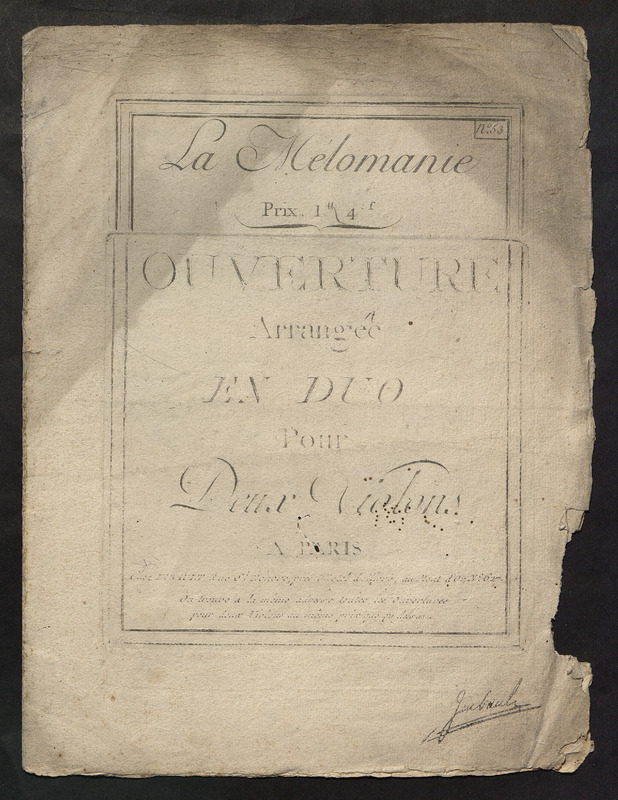 N.º 53
La Mélomanie
Prix. 1.ᵗᵗ 4.ˢ
OUVERTURE
Arrangée
EN DUO
Pour
Deux Violons
A PARIS
Chez Rue S.ᵗ Honoré, près au Mont d'Or N.º
On trouve à la même adresse toutes les Ouvertures
pour deux Violons au même prix que